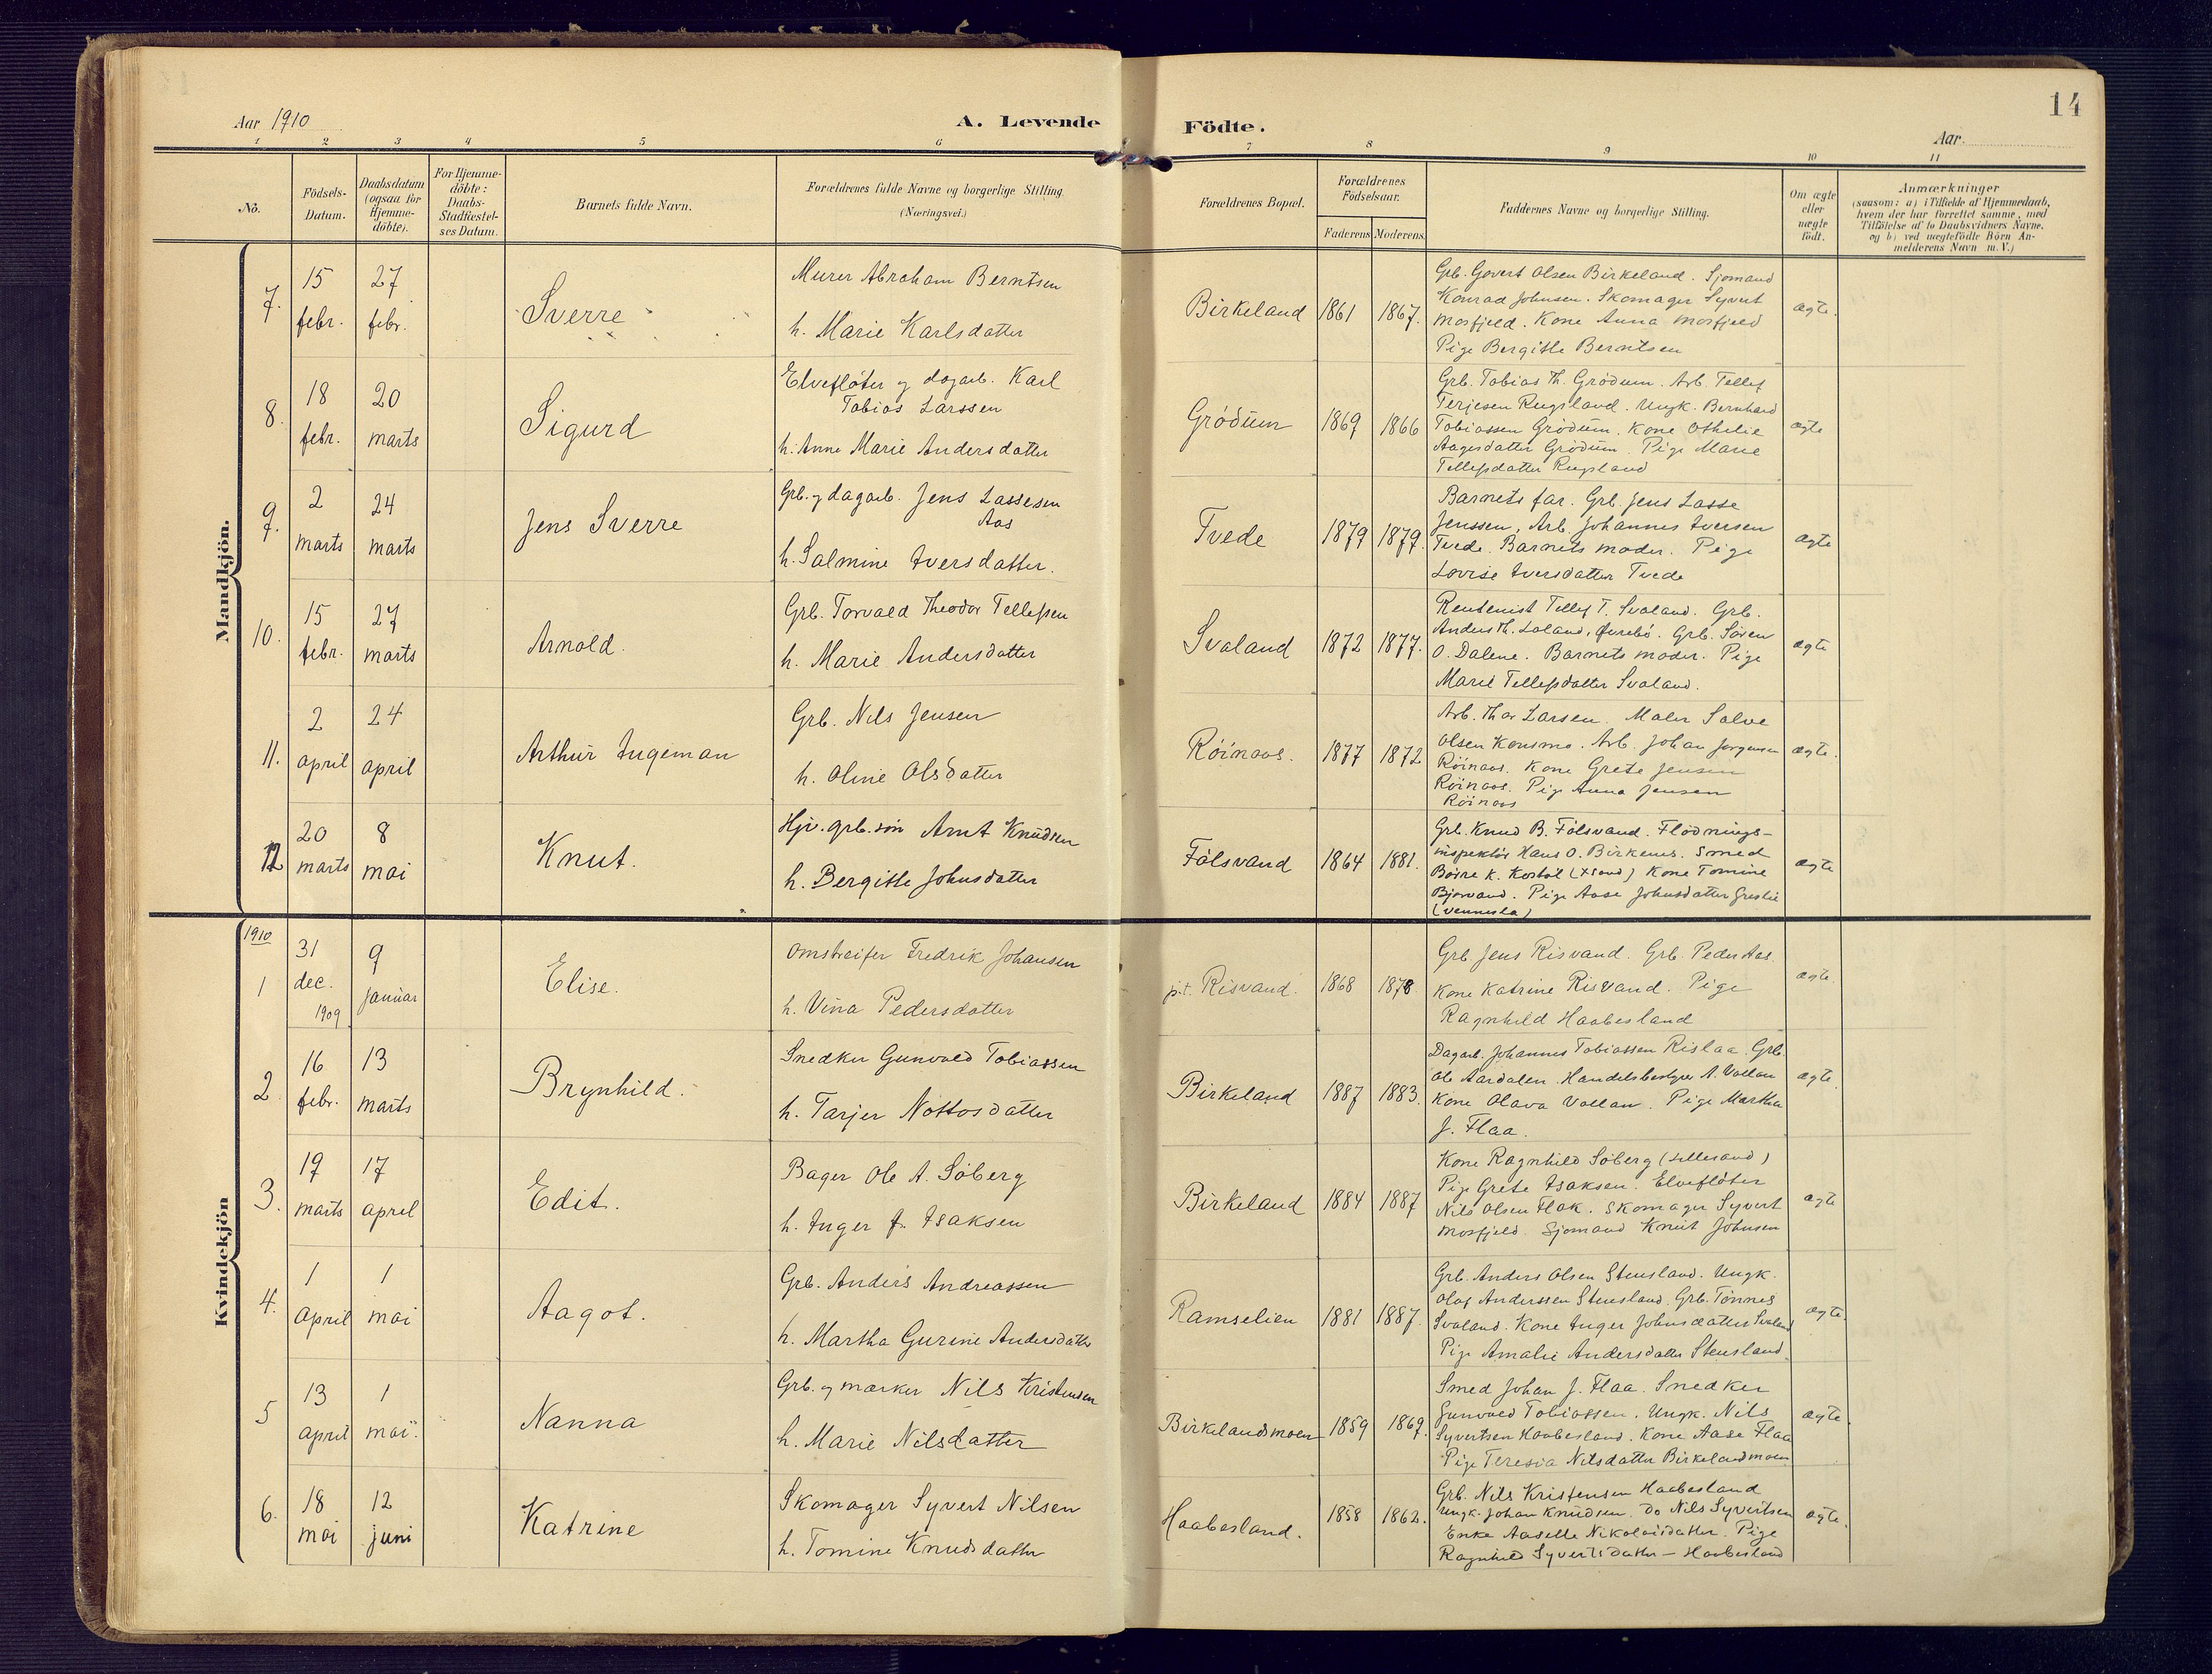 14
Aar 1910
A. Levende Födte.
Aar
1 2 3 4 5 6 7 8 9 10 11
No.
Födsels-
Datum.
Daabsdatum
(ogsaa for
Hjemme-
döbte).
For Hjemme-
döbte:
Daabs-
Stadfæstel-
ses Datum.
Barnets fulde Navn.
Forældrenes fulde Navne og borgerlige Stilling.
(Næringsvei.)
Forældrenes Bopæl.
Forældrenes
Födselsaar.
Faderens
Moderens.
Faddernes Navne og borgerlige Stilling.
Om ægte
eller
uægte
födt.
Anmærkninger
(saasom: a) i Tilfælde af Hjemmedaab,
hvem der har forrettet samme, med
Tilföielse af to Daabsvidners Navne,
og b) ved uægtefödte Börn An-
melderens Navn m. V.)
Mandkjön.
7.
15
febr.
27
febr.
Sverre
Murer Abraham Berntsen
h. Marie Karlsdatter
Birkeland
1861
1867.
Grb. Govert Olsen Birkeland. Sjømand
Konrad Johnsen. Skomager Syvert
Mosfjeld. Kone Anna Mosfjeld
Pige Bergitte Berntsen
ægte.
8.
18
febr.
20
marts
Sigurd
Elvefløter og dagarb. Karl
Tobias Larssen
h. Anne Marie Andersdatter
Grødum
1869
1866
Grb. Tobias Th. Grødum. Arb. Tellef
Terjesen Rugsland. Ungk. Bernhard
Tobiassen Grødum. Kone Othelie
Aagesdatter Grødum. Pige Marie
Tellefsdatter Rugsland
ægte
9.
2
marts
24
marts
Jens Sverre
Grb. og dagarb. Jens Lassesen
Aas
h. Salmine Iversdatter.
Tvede
1879
1879.
Barnets far. Grb. Jens Lasse
Jenssen, Arb. Johannes Iversen
Tvede. Barnets moder. Pige
Lovise Iversdatter Tvede
ægte
10.
15
febr.
27
marts
Arnold.
Grb. Torvald Theodor Tellefsen
h. Marie Andersdatter
Svaland
1872
1877.
Rentenist Tellef T. Svaland. Grb.
Anders Th. Laland, Herebø. Grb. Søren
O. Dalene. Barnets moder. Pige
Marie Tellefsdatter Svaland.
ægte
11.
2
april
24
april
Arthur Ingeman
Grb. Nils Jensen
h. Oline Olsdatter
Røinaas.
1877
1872
Arb. Thor Larsen. Maler Salve
Olsen Konsmo. Arb. Johan Jørgensen
Røinaas. Kone Grete Jensen
Røinaas. Pige Anna Jensen
Røinaas
ægte.
12
20
marts
8
mai
Knut.
Hjv. grb. søn Arnt Knudsen
h. Bergitte Johnsdatter
Følsvand
1864
1881.
Grb. Knud B. Følsvand. Flødnings-
inspektør Hans O. Birkenes. Smed
Børre K. Kostøl (Xsand) Kone Tomine
Bjorvand. Pige Aase Johnsdatter Greslie
(Vennesla)
ægte
Kvindekjön
1910
1
31
dec.
1909
9
januar
Elise.
Omstreifer Fredrik Johansen
h. Vina Pedersdatter
p.t. Risvand.
1868
1878
Grb. Jens Risvand. Grb. Peder Aas
Kone Katrine Risvand. Pige
Ragnhild Haabesland
ægte.
2
16
febr.
13
marts
Brynhild.
Snedker Gunvald Tobiassen
h. Tarjer Nottosdatter
Birkeland
1887
1883.
Dagarb. Johannes Tobiassen Rislaa. Grb.
Ole Aardalen. Handelsbestyrer A. Vollan
Kone Olava Vollan. Pige Martha
J. Flaa.
ægte.
3.
19
marts
17
april
Edit.
Bager Ole A. Søberg
h. Inger J. Isaksen
Birkeland
1884
1887
Kone Ragnhild Søberg (Lillesand)
Pige Grete Isaksen. Elvefløter
Nils Olsen Flak. Skomager Syvert
Mosfjeld. Sjømand Knut Johnsen
ægte
4.
1
april
1
mai
Aagot.
Grb. Anders Andreassen
h. Martha Gurine Andersdatter
Ramselien
1881
1887.
Grb. Anders Olsen Stensland. Ungk.
Olaf Anderssen Stensland. Grb. Tønnes
Svaland. Kone Inger Johnsdatter Svaland
Pige Amalie Andersdatter Stensland.
ægte.
5
13
april
1
mai.
Nanna
Grb. og mærker Nils Kristensen
h. Marie Nilsdatter
Birkelandsmoen
1859
1869.
Smed Johan J. Flaa. Snedker
Gunvald Tobiassen. Ungk. Nils
Syvertsen Haabesland. Kone Aase Flaa
Pige Teresia Nilsdatter Birkelandmoen
ægte.
6.
18
mai
12
juni
Katrine
Skomager Syvert Nilsen
h. Tomine Knudsdatter
Haabesland.
1858
1862.
Grb. Nils Kristensen Haabesland
Ungk. Johan Knudsen. Do Nils Syvertsen
Enke Aaselle Nikolaisdatter. Pige
Ragnhild Syvertsdatter – Haabesland
ægte.